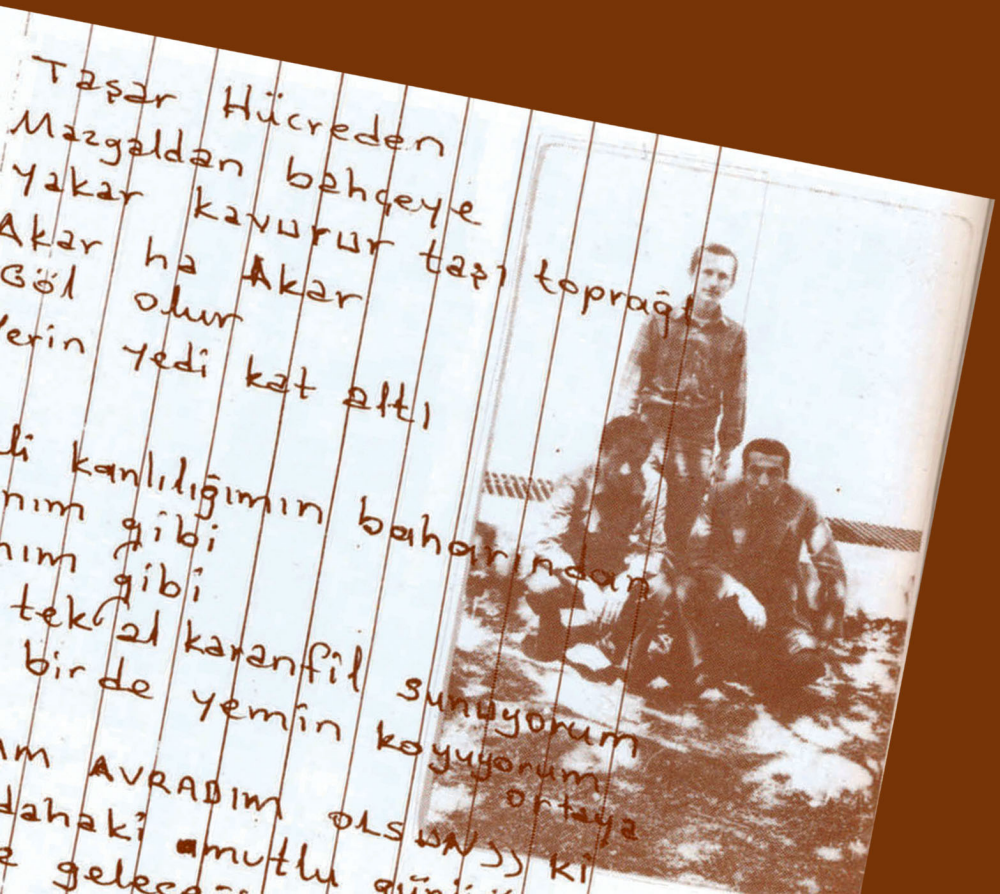 Taşar Hücreden
Mazgaldan bahçeye
Yakar kavurur taşı toprağı
Akar ha Akar
Göl olur
Yerin yedi kat altı
li kanlılığımın baharından
nım gibi
nım gibi
tek al karanfil sunuyorum
bir de yemin koyuyorum
ortaya
ım AVRADIM OLSUN)) ki
dahaki umutlu